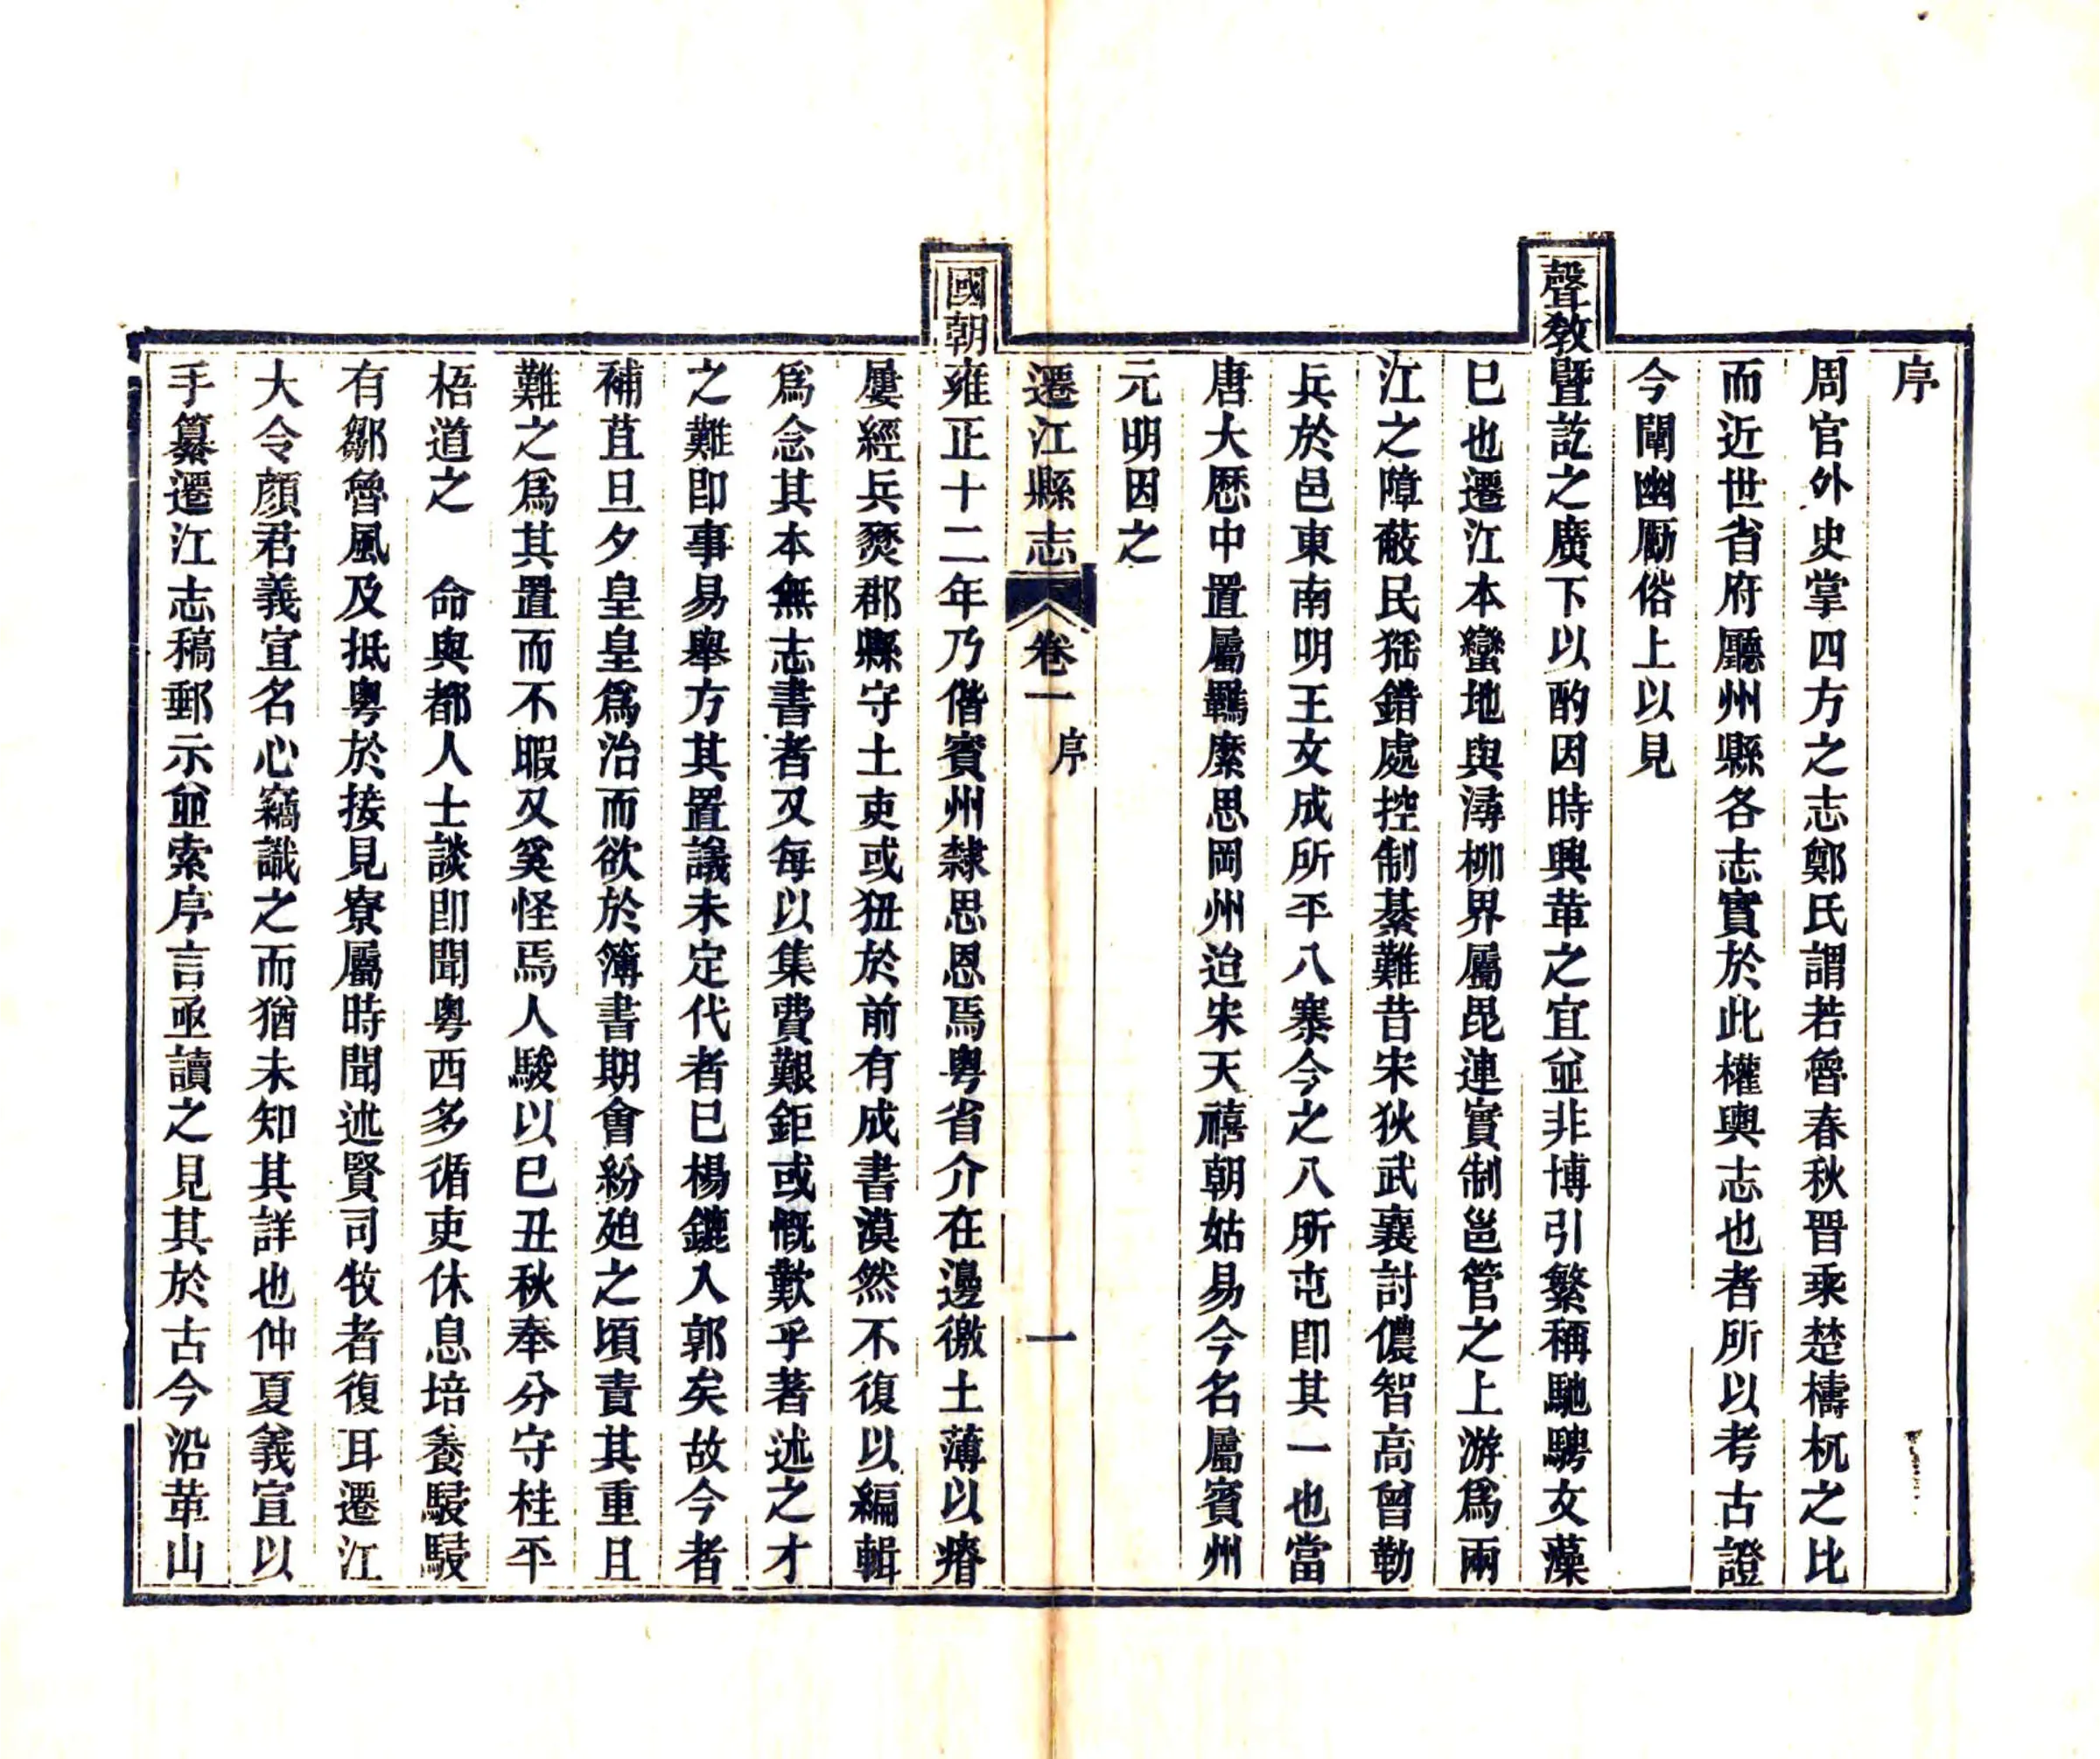 序
周官外史掌四方之志鄭氏謂若魯春秋晋乘楚檮杌之比
而近世省府廳州縣各志實於此權輿志也者所以考古證
今闡幽厲俗上以見
聲教暨訖之廣下以酌因時興革之宜並非博引繁稱馳騁文藻
已也遷江本蠻地與潯柳界屬毘連實制邕管之上游爲兩
江之障蔽民猺錯處控制綦難昔宋狄武襄討儂智高曾勒
兵於邑東南明王文成所平八寨今之八所屯即其一也當
唐大厯中置屬羈縻思岡州迨宋天禧朝始易今名屬賓州
元明因之
遷江縣志 卷一 序 一
國朝雍正十二年乃偕賓州隸思恩焉粵省介在邊徼土薄以瘠
屢經兵燹郡縣守土吏或狃於前有成書漠然不復以編輯
爲念其本無志書者又每以集費艱鉅或慨歎乎著述之才
之難即事易舉方其置議未定代者已楊鑣入郭矣故今者
補苴旦夕皇皇爲治而欲於簿書期會紛廹之頃責其重且
難之爲其置而不暇又奚怪焉人駿以己丑秋奉分守桂平
梧道之　命與都人士談即聞粵西多循吏休息培養駸駸
有鄒魯風及抵粵於接見寮屬時聞述賢司牧者復耳遷江
大令顏君義宣名心竊識之而猶未知其詳也仲夏義宣以
手纂遷江志稿郵示並索序言亟讀之見其於古今沿革山